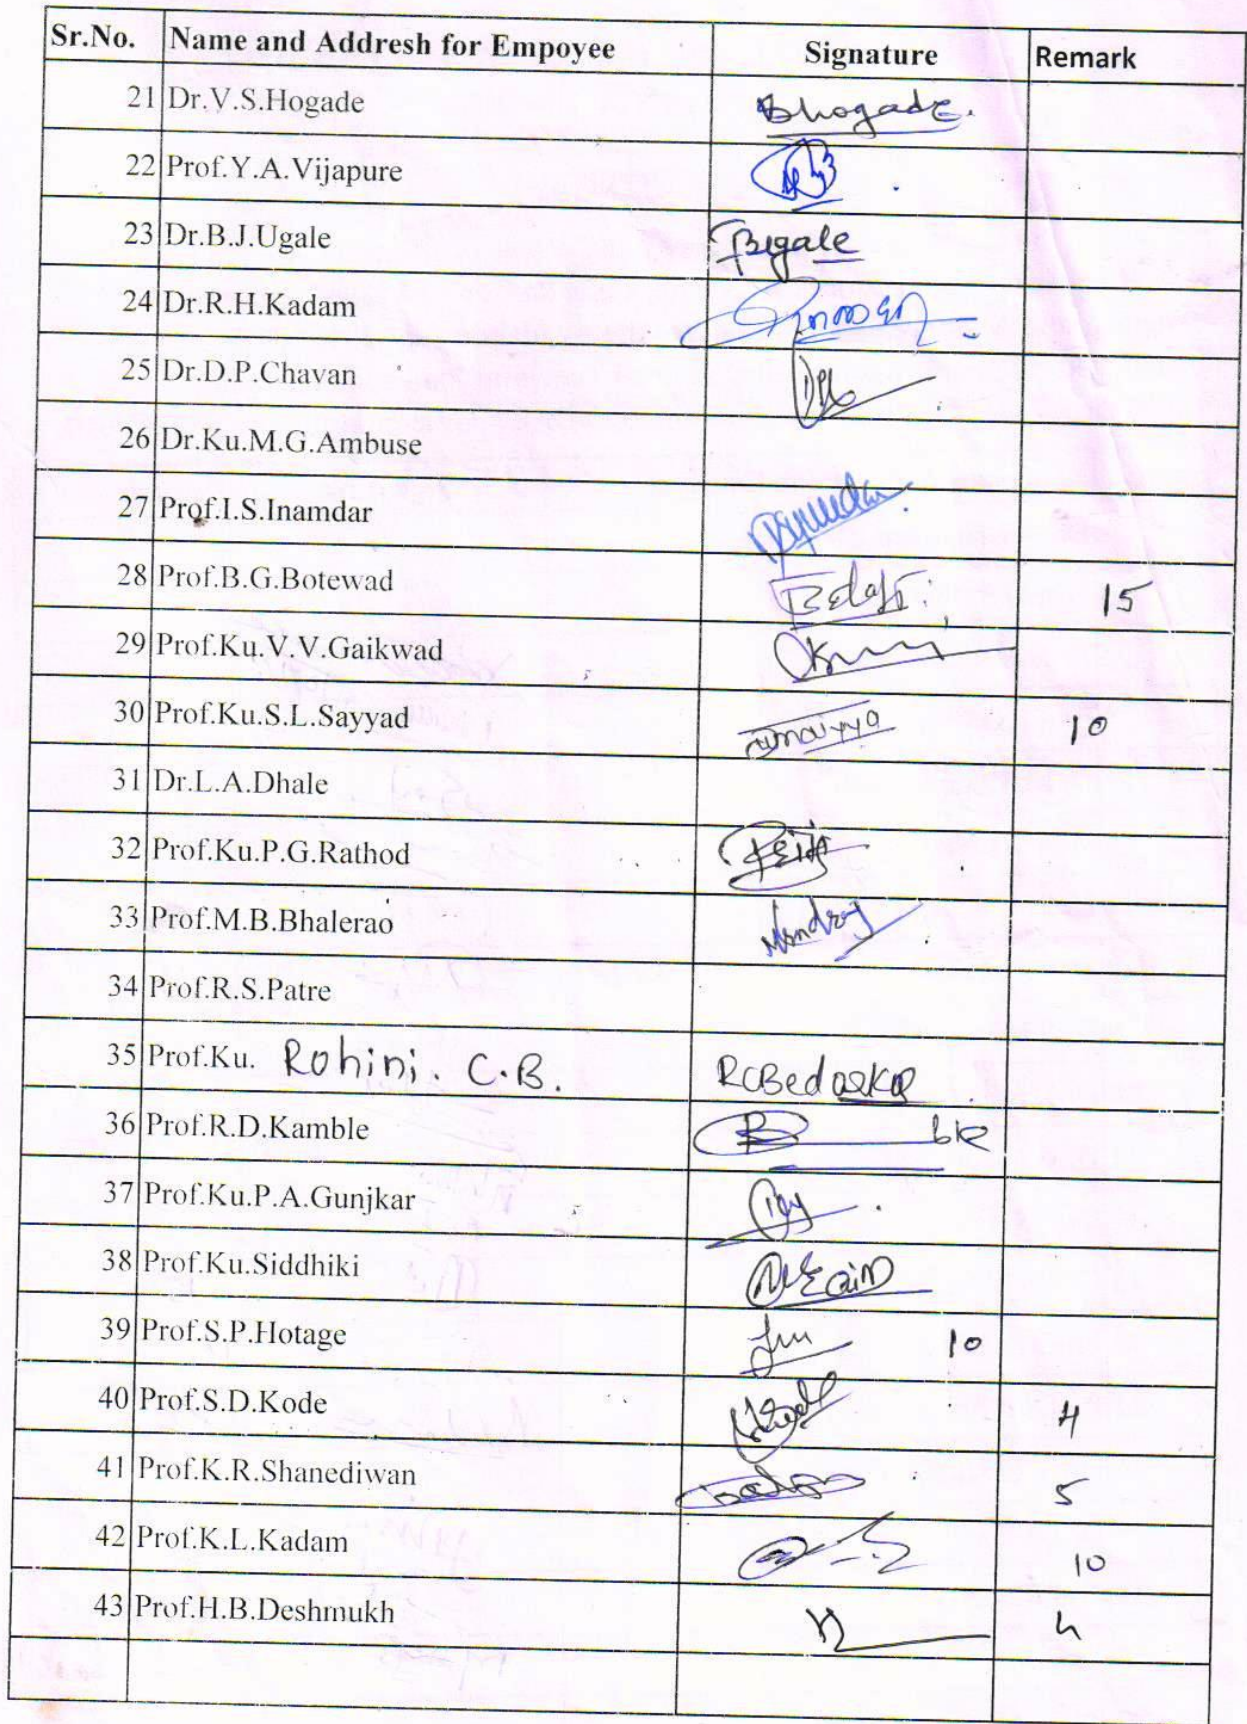 Sr.No. Name and Addresh for Empoyee Signature Remark
21 Dr.V.S.Hogade Bhogade.
22 Prof.Y.A.Vijapure
23 Dr.B.J.Ugale Bugale
24 Dr.R.H.Kadam
25 Dr.D.P.Chavan
26 Dr.Ku.M.G.Ambuse
27 Prof.I.S.Inamdar
28 Prof.B.G.Botewad 15
29 Prof.Ku.V.V.Gaikwad
30 Prof.Ku.S.L.Sayyad 10
31 Dr.L.A.Dhale
32 Prof.Ku.P.G.Rathod
33 Prof.M.B.Bhalerao
34 Prof.R.S.Patre
35 Prof.Ku. Rohini. C.B. RCBedaskar
36 Prof.R.D.Kamble
37 Prof.Ku.P.A.Gunjkar
38 Prof.Ku.Siddhiki
39 Prof.S.P.Hotage 10
40 Prof.S.D.Kode 4
41 Prof.K.R.Shanediwan 5
42 Prof.K.L.Kadam 10
43 Prof.H.B.Deshmukh